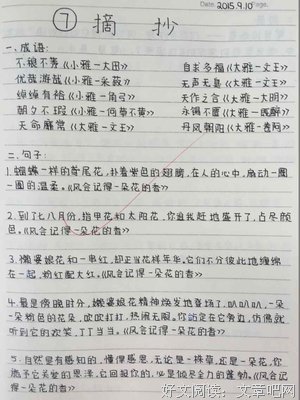 Date. 2015.9.10 Page.
⑦ 摘 抄
一、成语:
不稂不莠《小雅-大田》 自求多福《大雅-文王》
优哉游哉《小雅-采菽》 无声无臭《大雅-文王》
绰绰有裕《小雅-角弓》 天作之合《大雅-大明》
朝夕不暇《小雅-何草不黄》 永锡不匮《大雅-既醉》
天命靡常《大雅-文王》 丹凤朝阳《大雅-卷阿》
二、句子:
1.蝴蝶一样的鸢尾花,扑着紫色的翅膀,在人的心中,扇动一圈
一圈的温柔。《风会记得一朵花的香》
2.到了七八月份,指甲花和太阳花,你追我赶地盛开了,占尽颜
色。《风会记得一朵花的香》
3.懒婆娘花和一串红,却正当花样年华,它们不分彼此地缠绵
在一起,粉红配大红。《风会记得一朵花的香》
4.最是傍晚时分,懒婆娘花精神焕发地登场了,叭叭叭,一朵
一朵粉色的花朵,吹吹打打,热闹无限。你站定在它旁边,仿佛就
听到它的欢笑,丁丁当当。《风会记得一朵花的香》
5.自然是有感知的,懂得感恩,无论是一株草,还是一朵花,你
赋予它关爱的恩泽,它回报你的,必是倾尽全力的蓬勃。《风会记
得一朵花的香》
好文阅读:文章吧网